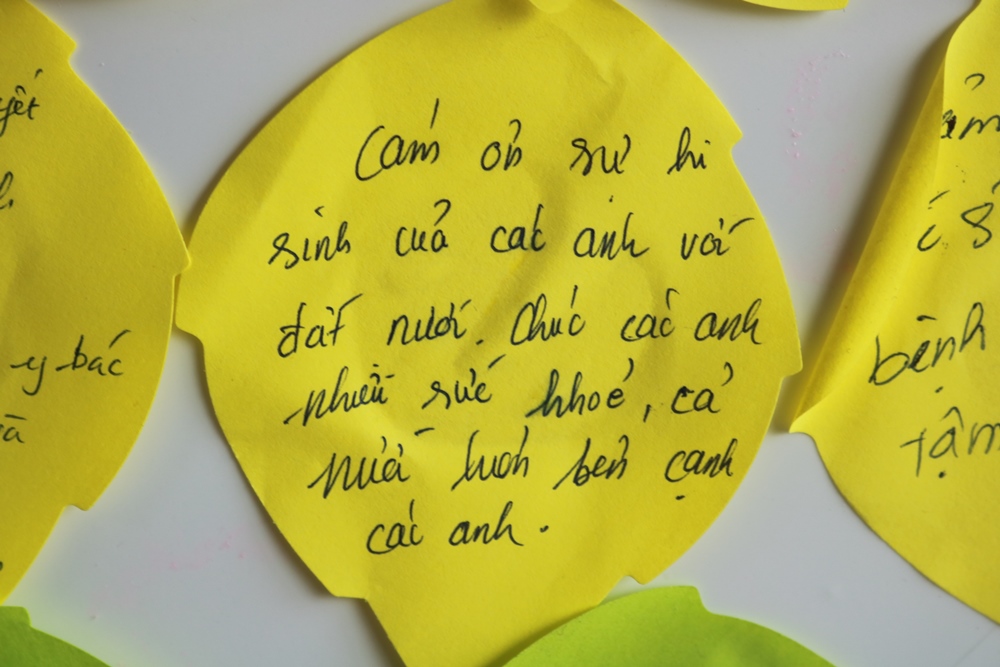 Cảm ơn sự hi
sinh của các anh với
đất nước. Chúc các anh
nhiều sức khoẻ, cả
nước luôn bên cạnh
các anh.
y bác
bệnh
tậm